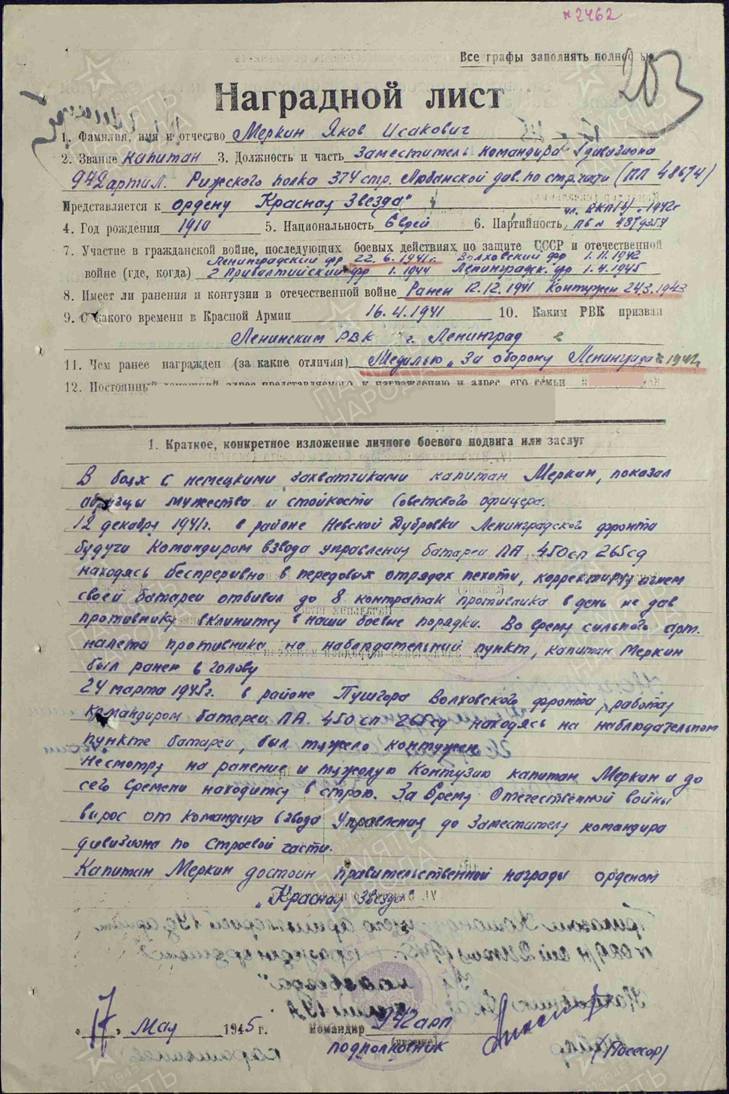 № 2462
Все графы заполнять полностью
203
Наградной лист
1. Фамилия, имя и отчество Меркин Яков Исакович
2. Звание капитан 3. Должность и часть Заместитель командира дивизиона
942 артил. Рижского полка 374 стр. Любанской див. по стр. части (ПП 48674)
Представляется к ордену "Красная Звезда"
4. Год рождения 1910 5. Национальность Еврей 6. Партийность чл. ВКП(б) с 1942г
7. Участие в гражданской войне, последующих боевых действиях по защите СССР и отечественной
Ленинградский фр 22.6.1941г. Волховский фр 1.11.1942
войне (где, когда) 2 Прибалтийский фр 1.1944 Ленинградск. фр 1.4.1945
8. Имеет ли ранения и контузии в отечественной войне Ранен 12.12.1941 Контужен 24.3.1943
9. С какого времени в Красной Армии 16.4.1941 10. Каким РВК призван
Ленинским РВК г. Ленинград
11. Чем ранее награжден (за какие отличия) Медалью "За оборону Ленинграда" 1942г
12. Постоянный домашний адрес представляемого к награждению и адрес его семьи
1. Краткое, конкретное изложение личного боевого подвига или заслуг
В боях с немецкими захватчиками капитан Меркин, показал
образцы мужества и стойкости Советского офицера.
12 декабря 1941г. в районе Невской Дубровки Ленинградского фронта
будучи Командиром взвода управления батареи ПА 450сп 265сд
находясь беспрерывно в передовых отрядах пехоты, корректируя огнем
своей батареи отбивал до 8 контратак противника в день не дав
противнику вклинится в наши боевые порядки. Во время сильного арт.
налета противника на наблюдательный пункт, капитан Меркин
был ранен в голову
24 марта 1943г. в районе Пушгора Волховского фронта, работая
командиром батареи ПА 450 сп 265сд находясь на наблюдательном
пункте батареи, был тяжело контужен
Несмотря на ранение и тяжелую Контузию капитан Меркин и до
сего времени находится в строю. За время Отечественной войны
вырос от командира взвода Управления до Заместителя командира
дивизиона по строевой части.
Капитан Меркин достоин правительственной награды орденом
"Красная Звезда"
"17" Мая 1945 г. Командир 942 арп
подполковник